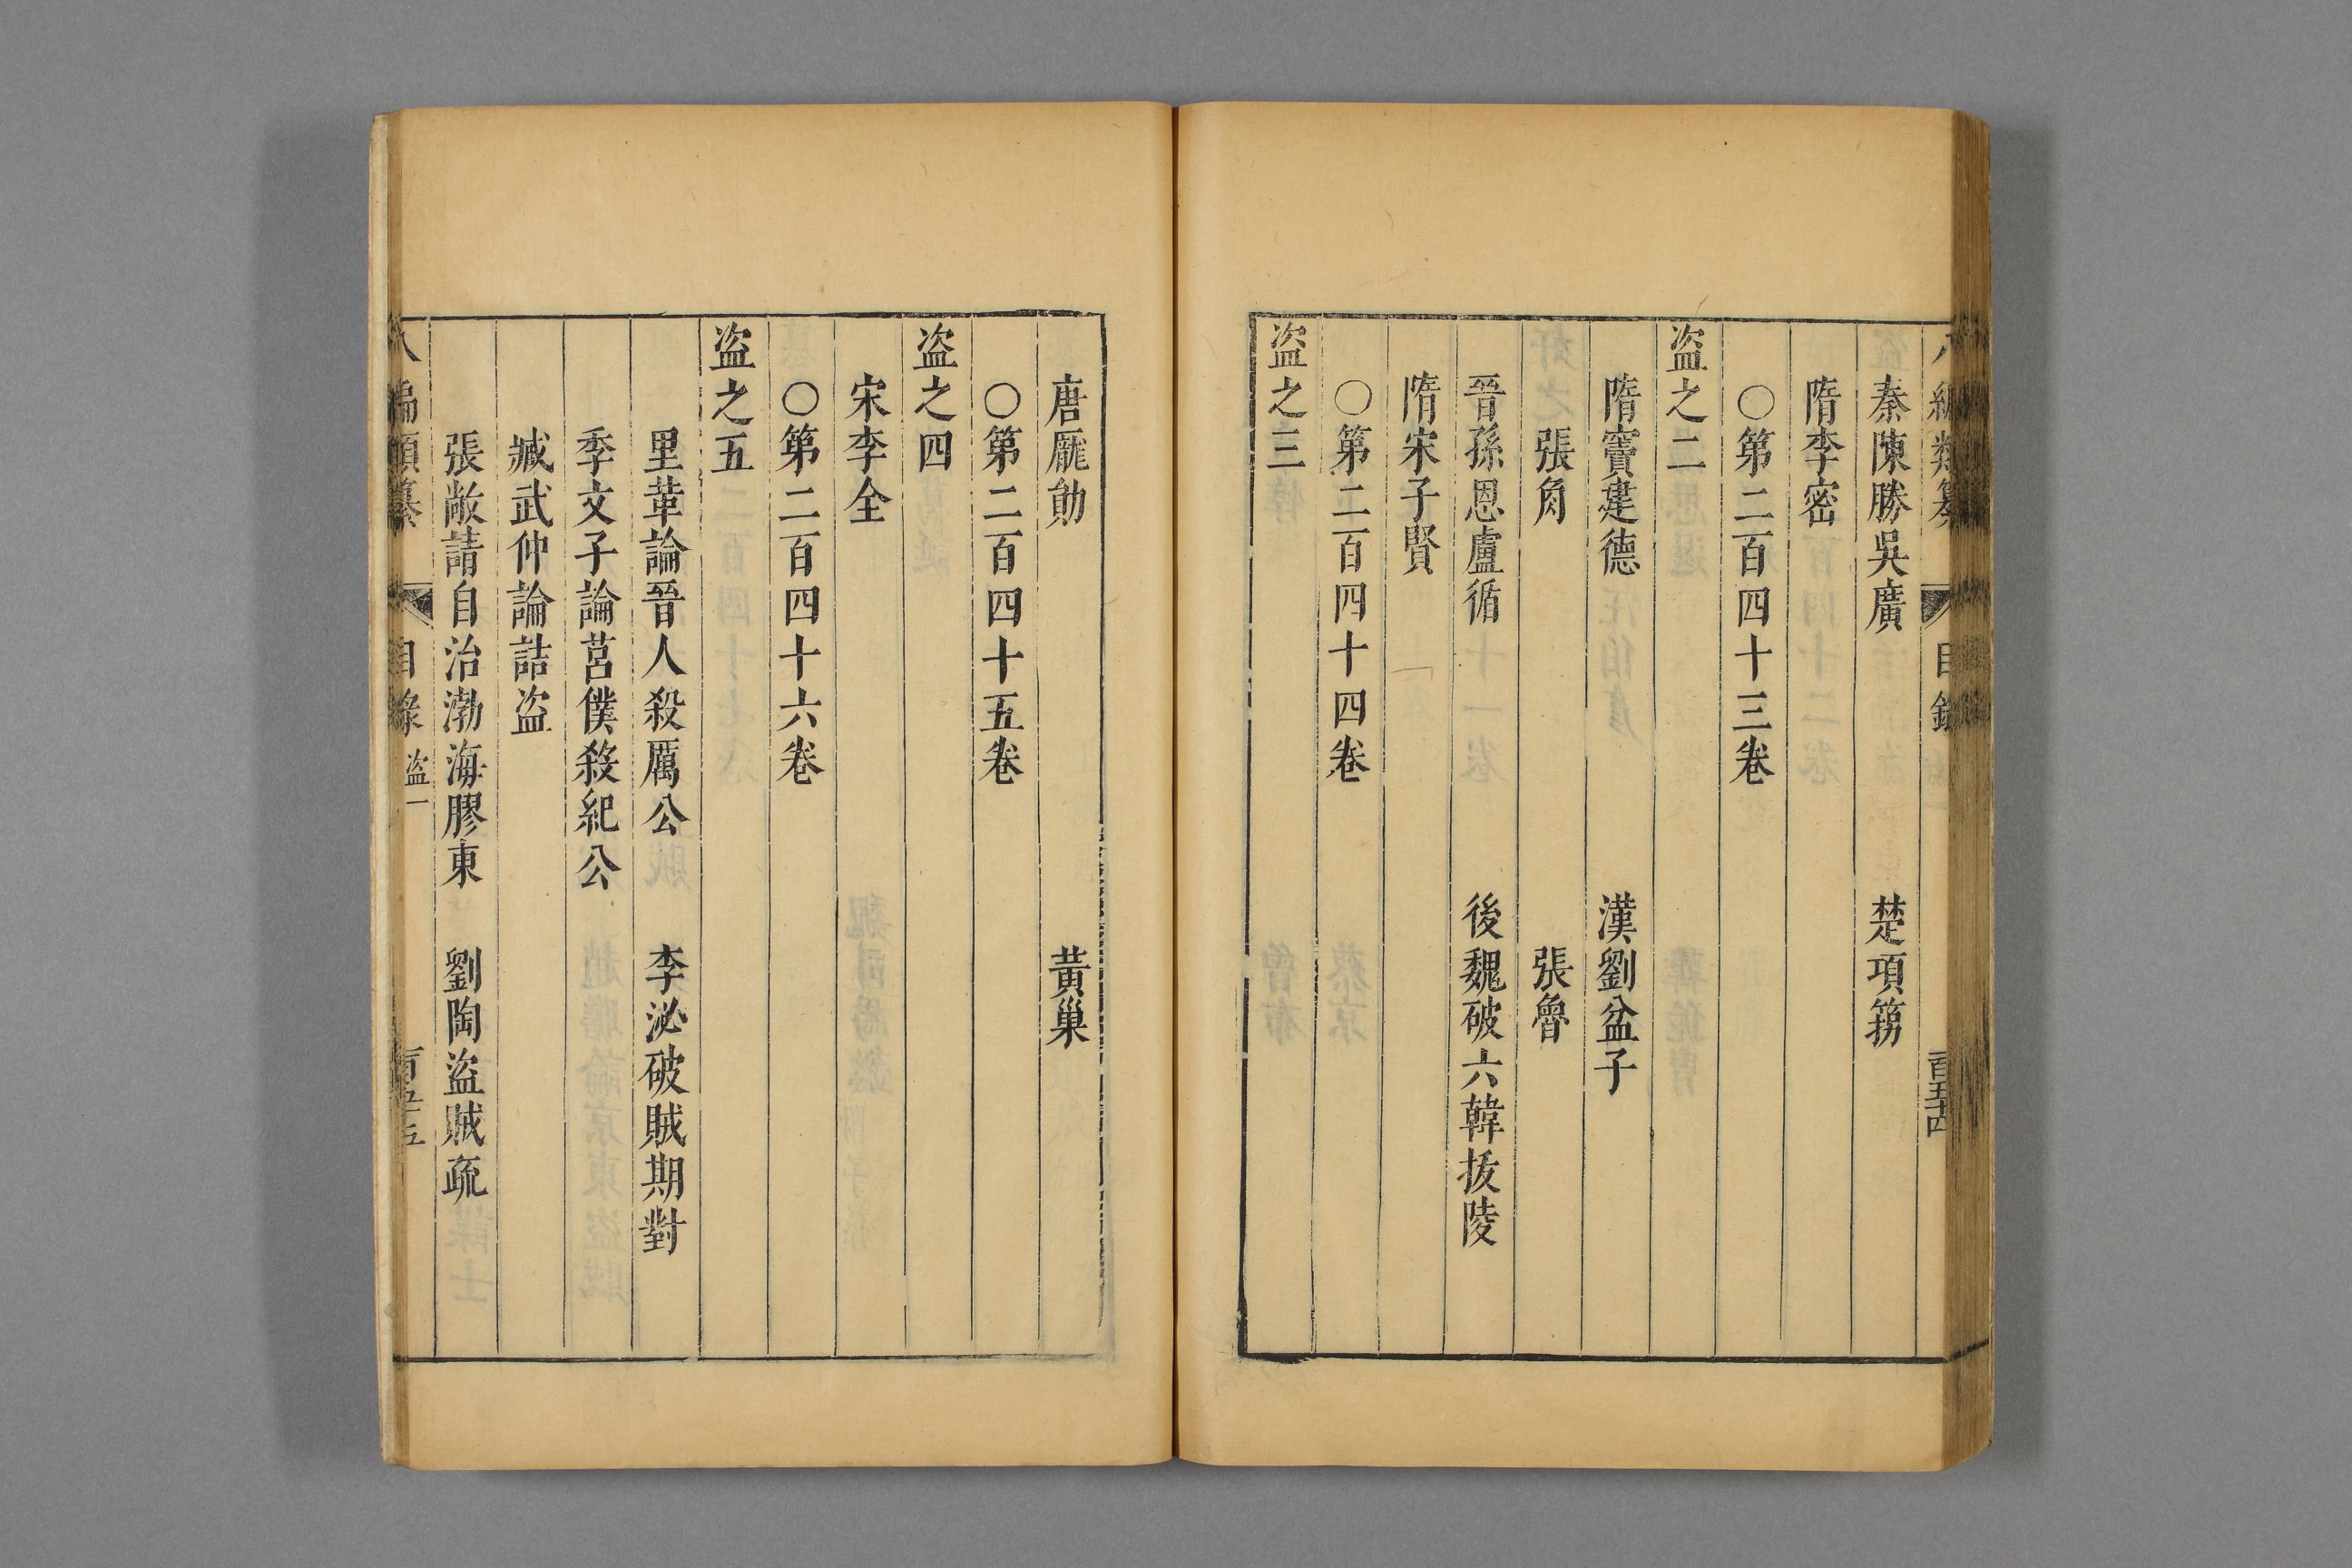 秦陳勝吳廣　楚項籍
隋李密
○第二百四十三卷
盜之二
隋竇建德　漢劉盆子
張角　張魯
晉孫恩盧循　後魏破六韓拔陵
隋宋子賢
○第二百四十四卷
盜之三
唐龐勛　黃巢
○第二百四十五卷
盜之四
宋李全
○第二百四十六卷
盜之五
里革論晉人殺厲公　李泌破賊期對
季文子論莒僕殺紀公
臧武仲論詰盜
張敞請自治渤海膠東　劉陶盜賊疏
八編類纂　目錄　盜一